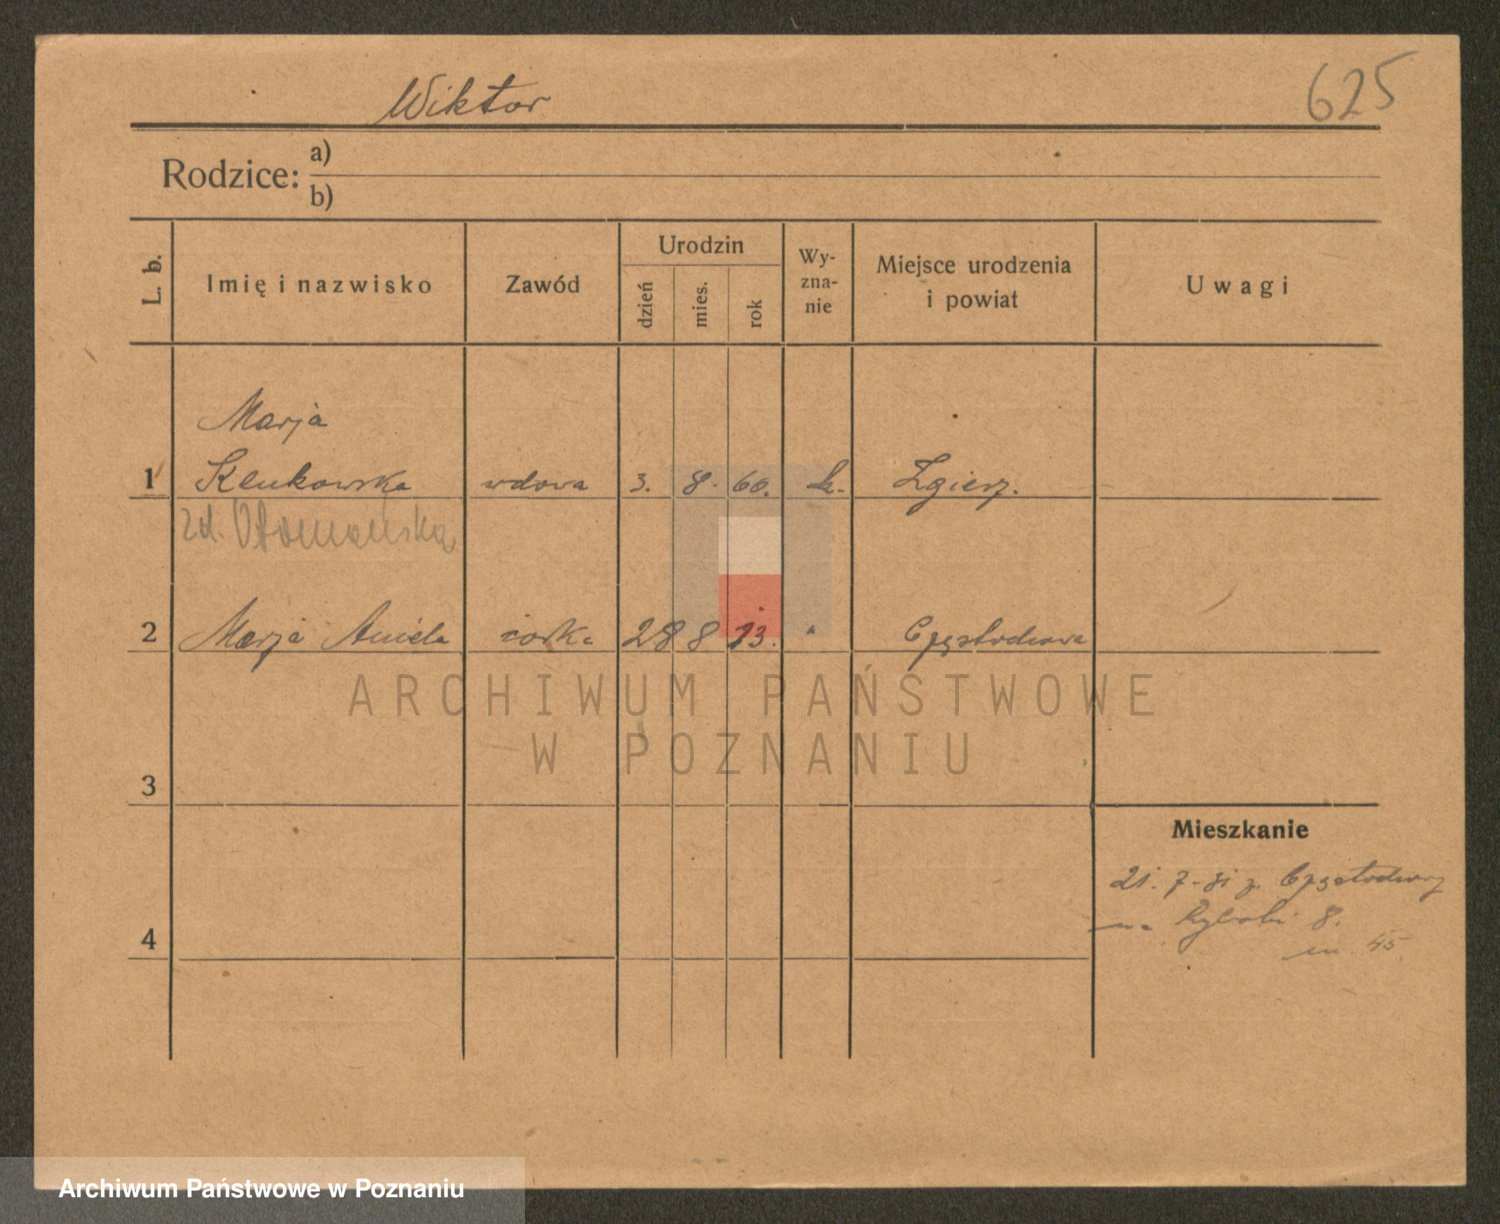 Wiktor
625
Rodzice: a)
b)
L. b.
Imię i nazwisko
Zawód
Urodzin
dzień
mies.
rok
Wy-
zna-
nie
Miejsce urodzenia
i powiat
Uwagi
Marja
1 Klukowska wdowa 3. 8. 60. k. Zgierz.
zd.
2 Marja Aniela córka 28 8 93. " Częstochowa
ARCHIWUM PAŃSTWOWE
W POZNANIU
3
Mieszkanie
21. 7. 31 z. Częstochowy
na 8.
4
m. 45
Archiwum Państwowe w Poznaniu